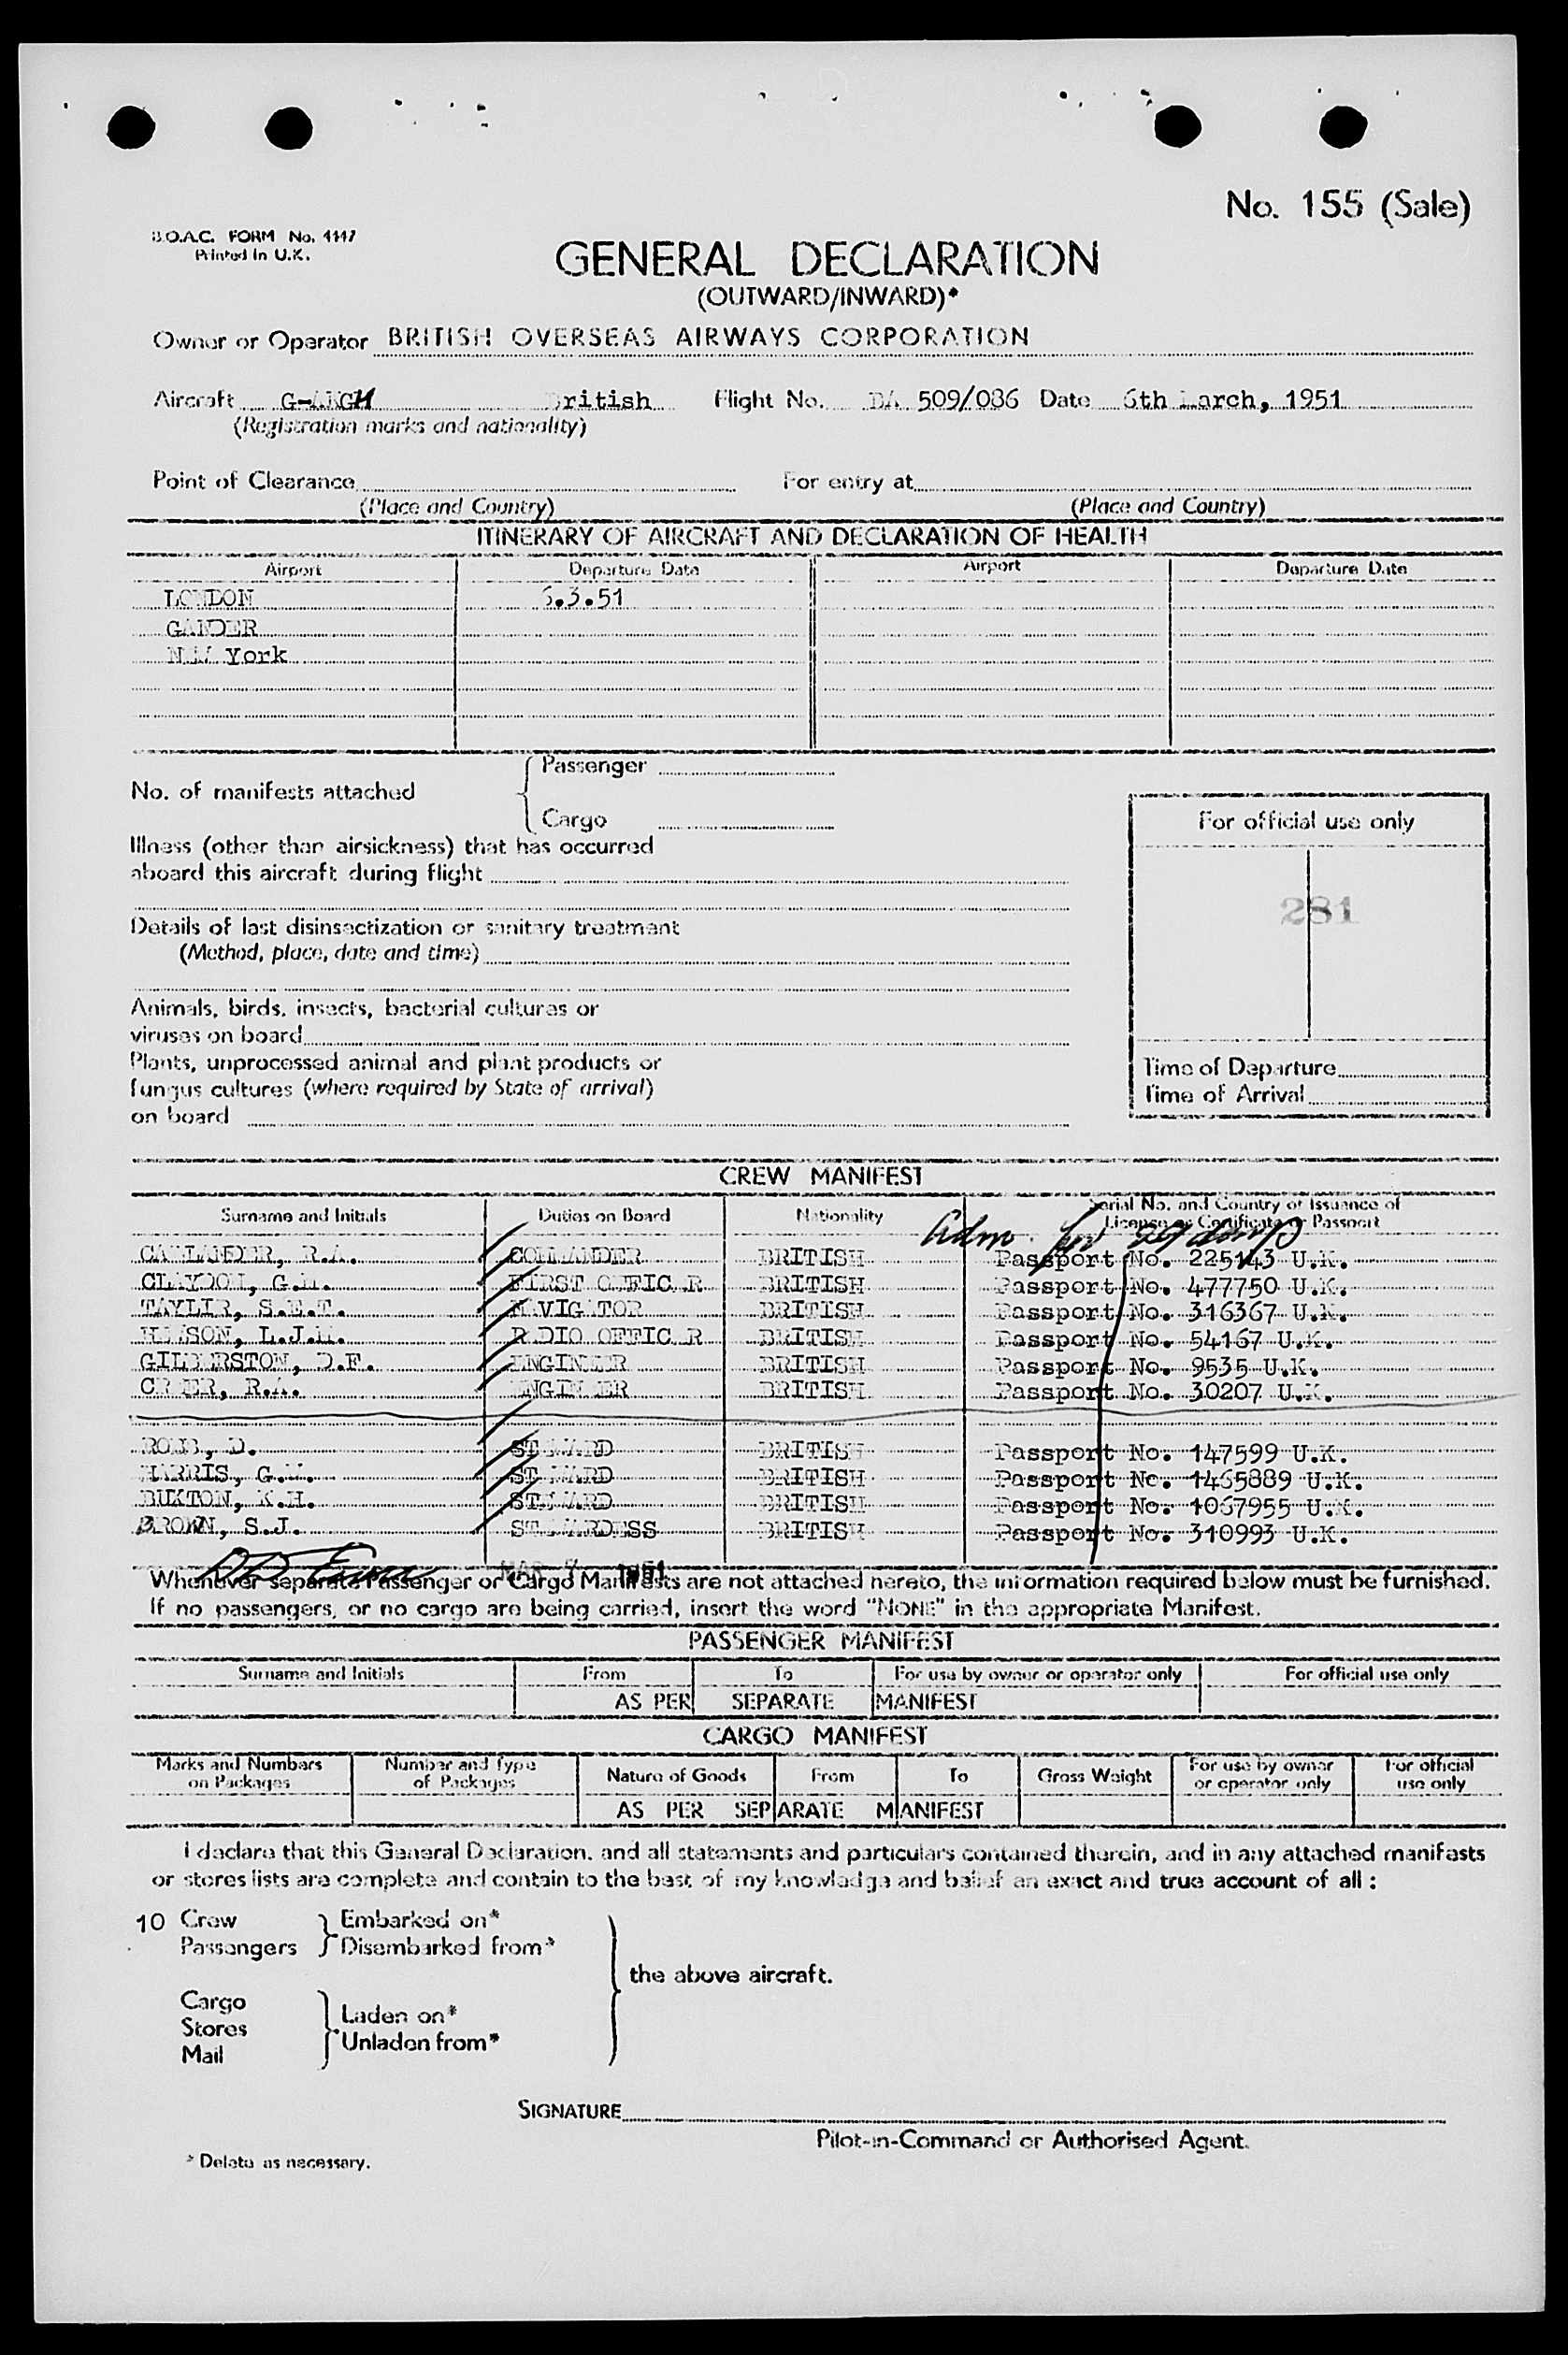 No. 155 (Sale)
B.O.A.C. FORM No. 4447
Printed in U.K.
GENERAL DECLARATION
(OUTWARD/INWARD)*
Owner or Operator BRITISH OVERSEAS AIRWAYS CORPORATION
Aircraft British Flight No. BA 509/086 Date 6th March, 1951
(Registration marks and nationality)
Point of Clearance For entry at
(Place and Country) (Place and Country)
ITINERARY OF AIRCRAFT AND DECLARATION OF HEALTH
Airport Departure Date Airport Departure Date
LONDON 6.3.51
GANDER
NEW York
No. of manifests attached Passenger
Cargo
For official use only
Illness (other than airsickness) that has occurred
aboard this aircraft during flight
281
Details of last disinsectization or sanitary treatment
(Method, place, date and time)
Animals, birds, insects, bacterial cultures or
viruses on board
Plants, unprocessed animal and plant products or
fungus cultures (where required by State of arrival)
on board
Time of Departure
Time of Arrival
CREW MANIFEST
Surname and Initials Duties on Board Nationality Serial No. and Country of Issuance of
Licence or Certificate or Passport
Adm.
R.A. COMMANDER BRITISH Passport No. 225143 U.K.
CLAYDON, G.M. FIRST OFFICER BRITISH Passport No. 477750 U.K.
TAYLIR, S.E.T. NAVIGATOR BRITISH Passport No. 316367 U.K.
L.J. RADIO OFFICER BRITISH Passport No. 54167 U.K.
GILBERSTON, D.F. ENGINEER BRITISH Passport No. 9535 U.K.
R.A. ENGINEER BRITISH Passport No. 30207 U.K.
D. STEWARD BRITISH Passport No. 147599 U.K.
HARRIS, G. STEWARD BRITISH Passport No. 1465889 U.K.
BUXTON, K.H. STEWARD BRITISH Passport No. 1067955 U.K.
BROWN, S.J. STEWARDESS BRITISH Passport No. 310993 U.K.
MAR 7 1951
Whenever separate Passenger or Cargo Manifests are not attached hereto, the information required below must be furnished.
If no passengers, or no cargo are being carried, insert the word "NONE" in the appropriate Manifest.
PASSENGER MANIFEST
Surname and Initials From To For use by owner or operator only For official use only
AS PER SEPARATE MANIFEST
CARGO MANIFEST
Marks and Numbers on Packages Number and Type of Packages Nature of Goods From To Gross Weight For use by owner or operator only For official use only
AS PER SEPARATE MANIFEST
I declare that this General Declaration, and all statements and particulars contained therein, and in any attached manifests
or stores lists are complete and contain to the best of my knowledge and belief an exact and true account of all :
10 Crew Embarked on*
Passengers Disembarked from*
the above aircraft.
Cargo
Stores Laden on*
Mail Unladen from*
SIGNATURE
Pilot-in-Command or Authorised Agent.
* Delete as necessary.